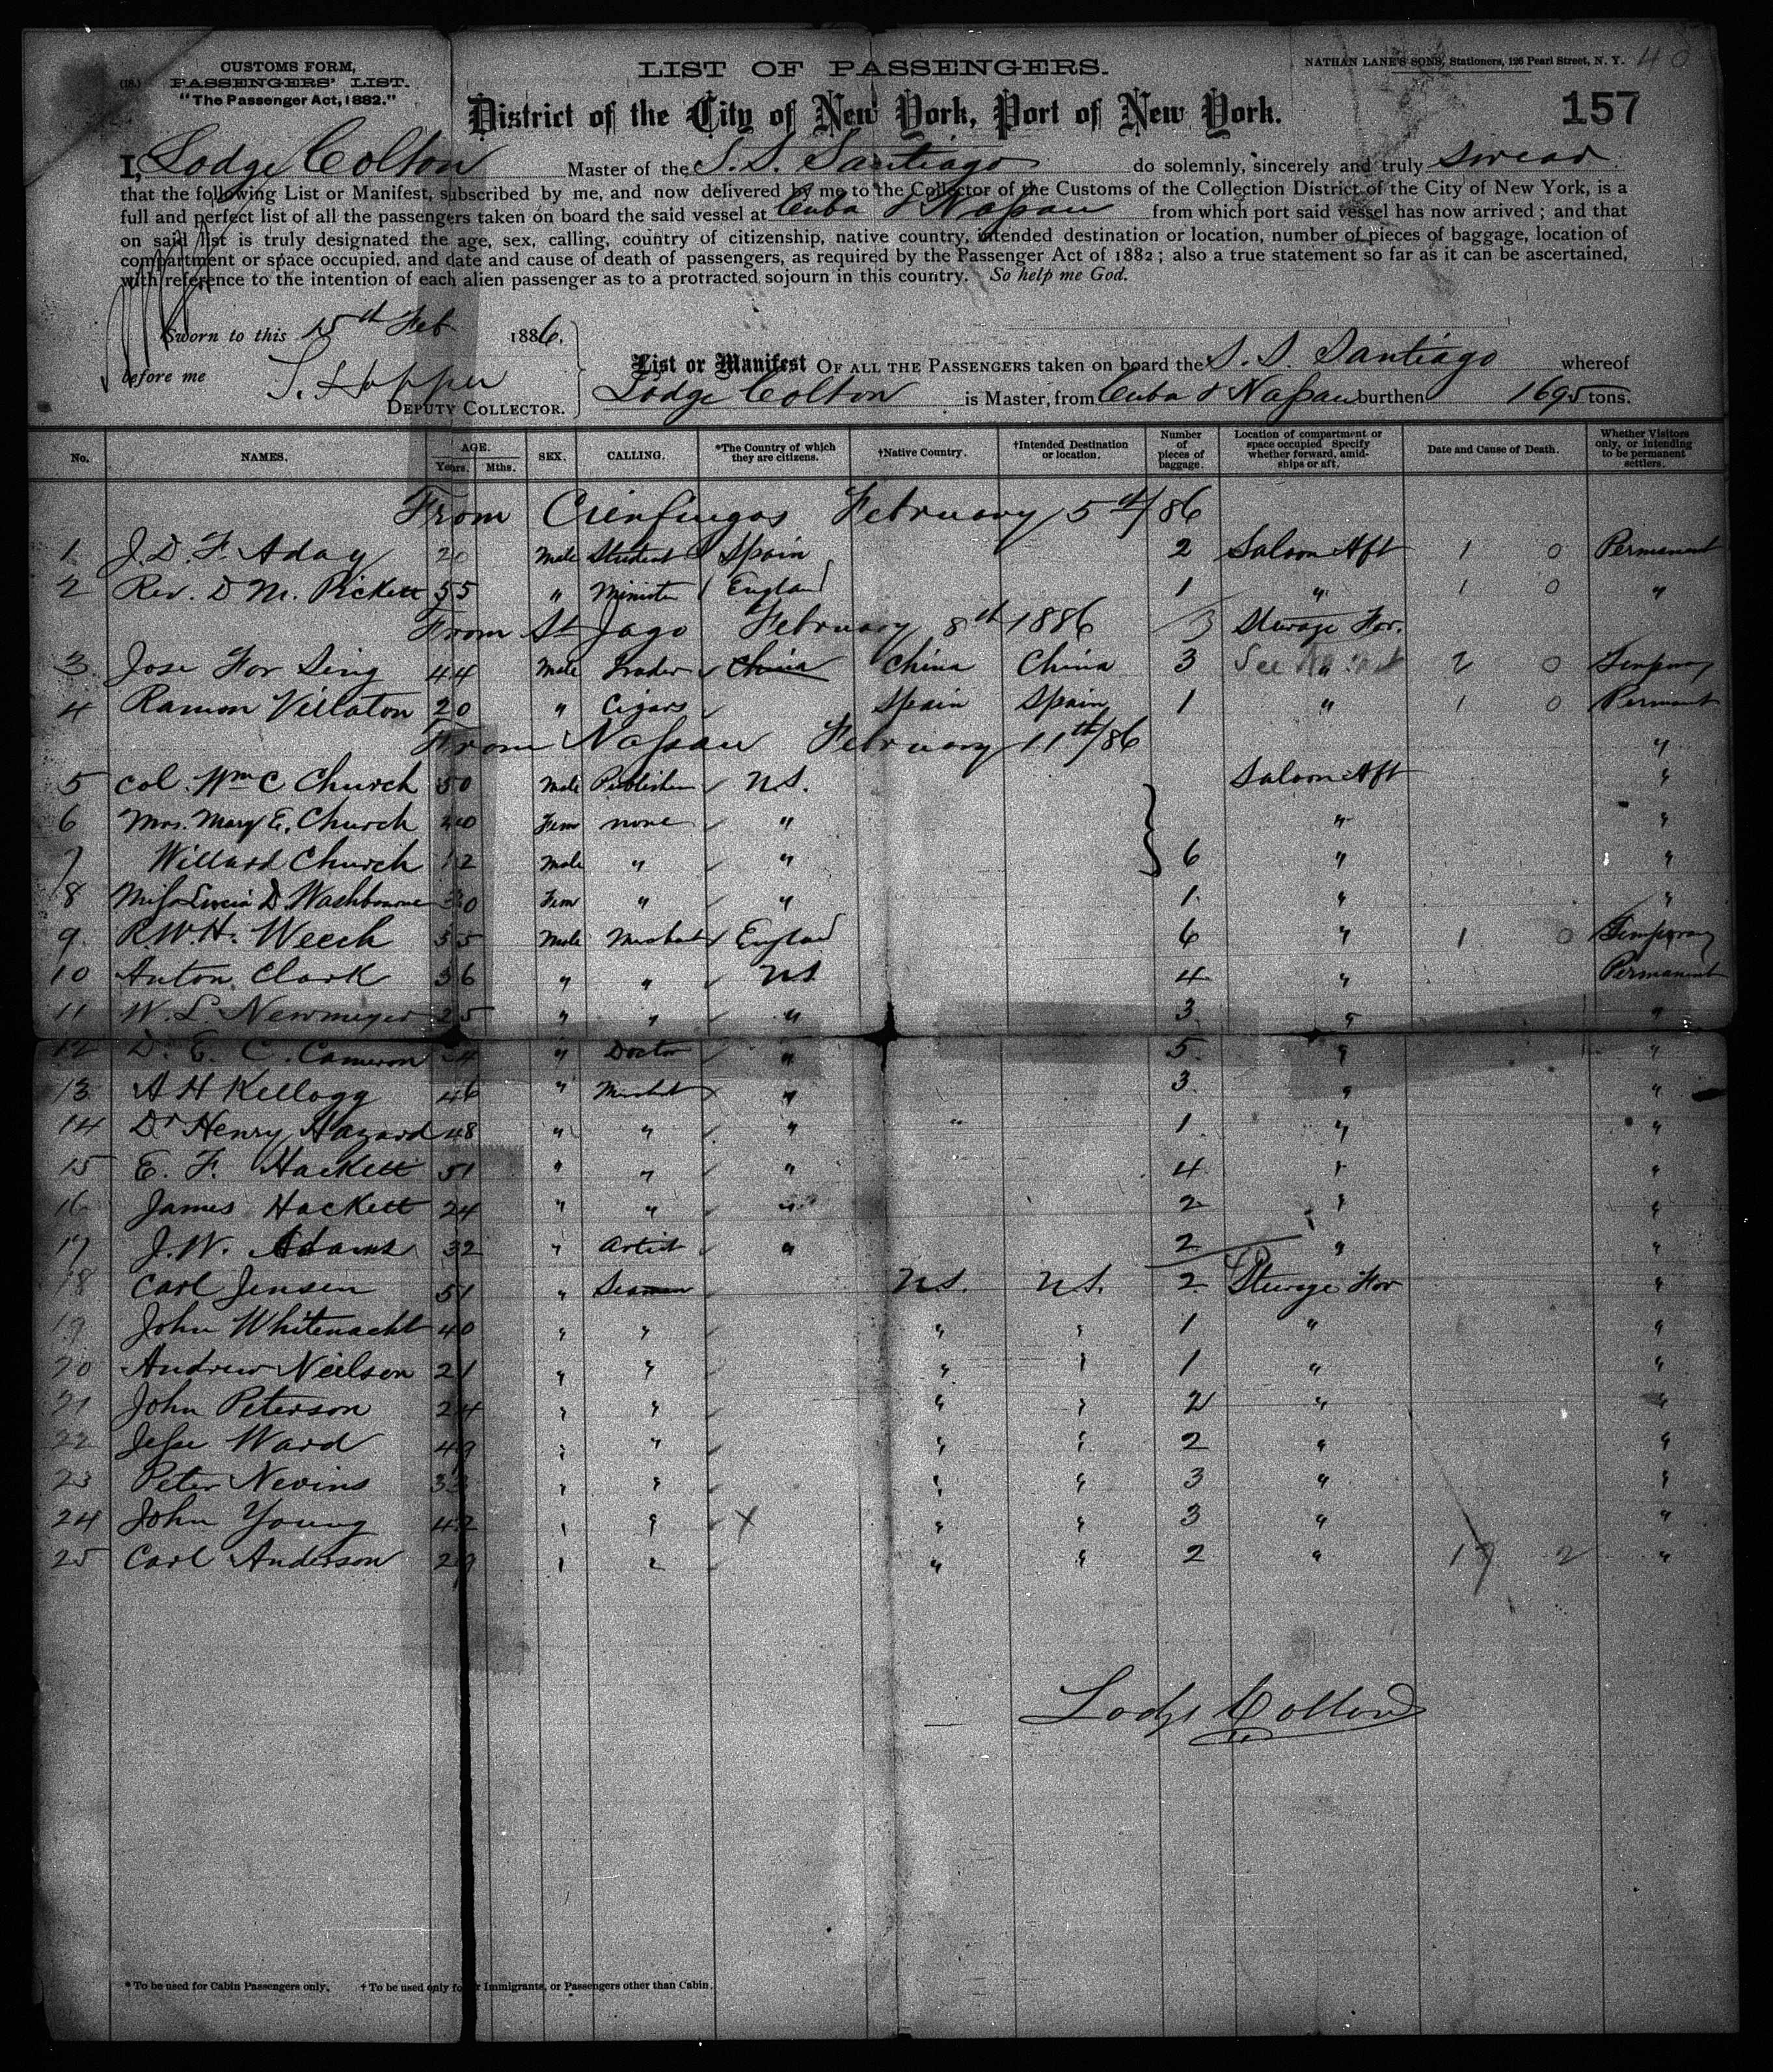 CUSTOMS FORM,
(18.) PASSENGERS' LIST.
"The Passenger Act, 1882."
LIST OF PASSENGERS.
NATHAN LANE'S SONS, Stationers, 126 Pearl Street, N. Y.
40
District of the City of New York, Port of New York.
157
I, Lodge Colton Master of the S. S. Santiago do solemnly, sincerely and truly swear
that the following List or Manifest, subscribed by me, and now delivered by me to the Collector of the Customs of the Collection District of the City of New York, is a
full and perfect list of all the passengers taken on board the said vessel at Cuba & Nassau from which port said vessel has now arrived; and that
on said list is truly designated the age, sex, calling, country of citizenship, native country, intended destination or location, number of pieces of baggage, location of
compartment or space occupied, and date and cause of death of passengers, as required by the Passenger Act of 1882; also a true statement so far as it can be ascertained,
with reference to the intention of each alien passenger as to a protracted sojourn in this country. So help me God.
Sworn to this 15th Feb 1886.
before me
DEPUTY COLLECTOR.
List or Manifest OF ALL THE PASSENGERS taken on board the S. S. Santiago whereof
Lodge Colton is Master, from Cuba & Nassau burthen 1695 tons.
No. NAMES. AGE. Years. Mths. SEX. CALLING. *The Country of which they are citizens. †Native Country. †Intended Destination or location. Number of pieces of baggage. Location of compartment or space occupied Specify whether forward, amidships or aft. Date and Cause of Death. Whether Visitors only, or intending to be permanent settlers.
From Cienfuegos February 5th/86
1 J. D. F. Aday 20 Male Student Spain 2 Saloon Aft 1 0 Permanent
2 Rev. D M. Pickett 55 " Minister England 1 " 1 0 "
From St Jago February 8th 1886 3 Sterage For.
3 Jose For Sing 44 Male Trader China China China 3 " 2 0 Temporary
4 Ramon Villaton 20 " Cigars Spain Spain 1 " 1 0 Permanent
From Nassau February 11th/86 "
5 Col. Wm C Church 50 Male Publisher U.S. Saloon Aft "
6 Mrs. Mary E. Church 40 Fem none " " "
7 Willard Church 12 Male " " 6 " "
8 Miss Lucia D. Washbourne 30 Fem " " 1 " "
9. R. W. H. Weech 55 Male Merchant England 6 " 1 0 Temporary
10 Anton Clark 36 " " U.S 4 " Permanent
11 W. L. Newmeyer 25 " " " 3 " "
12 D. E. C. Cameron 24 " Doctor " 5 " "
13 A H Kellogg 46 " Merchant " 3 " "
14 Dr Henry Hazard 48 " " " " 1 " "
15 E. F. Hackett 51 " " " 4 " "
16 James Hackett 24 " " " 2 " "
17 J. W. Adams 32 " Artist " 2 " "
18 Carl Jensen 51 " Seaman U.S. U.S. 2 Sterage For "
19 John Whitenacht 40 " " " " 1 " "
20 Andrew Neilson 21 " " " " 1 " "
21 John Peterson 24 " " " " 2 " "
22 Jesse Ward 49 " " " " 2 " "
23 Peter Nevins 33 " " " " 3 " "
24 John Young 42 " " X " " 3 " "
25 Carl Anderson 29 " " " " 2 " 17 2 "
Lodge Colton
* To be used for Cabin Passengers only. † To be used only for Immigrants, or Passengers other than Cabin.